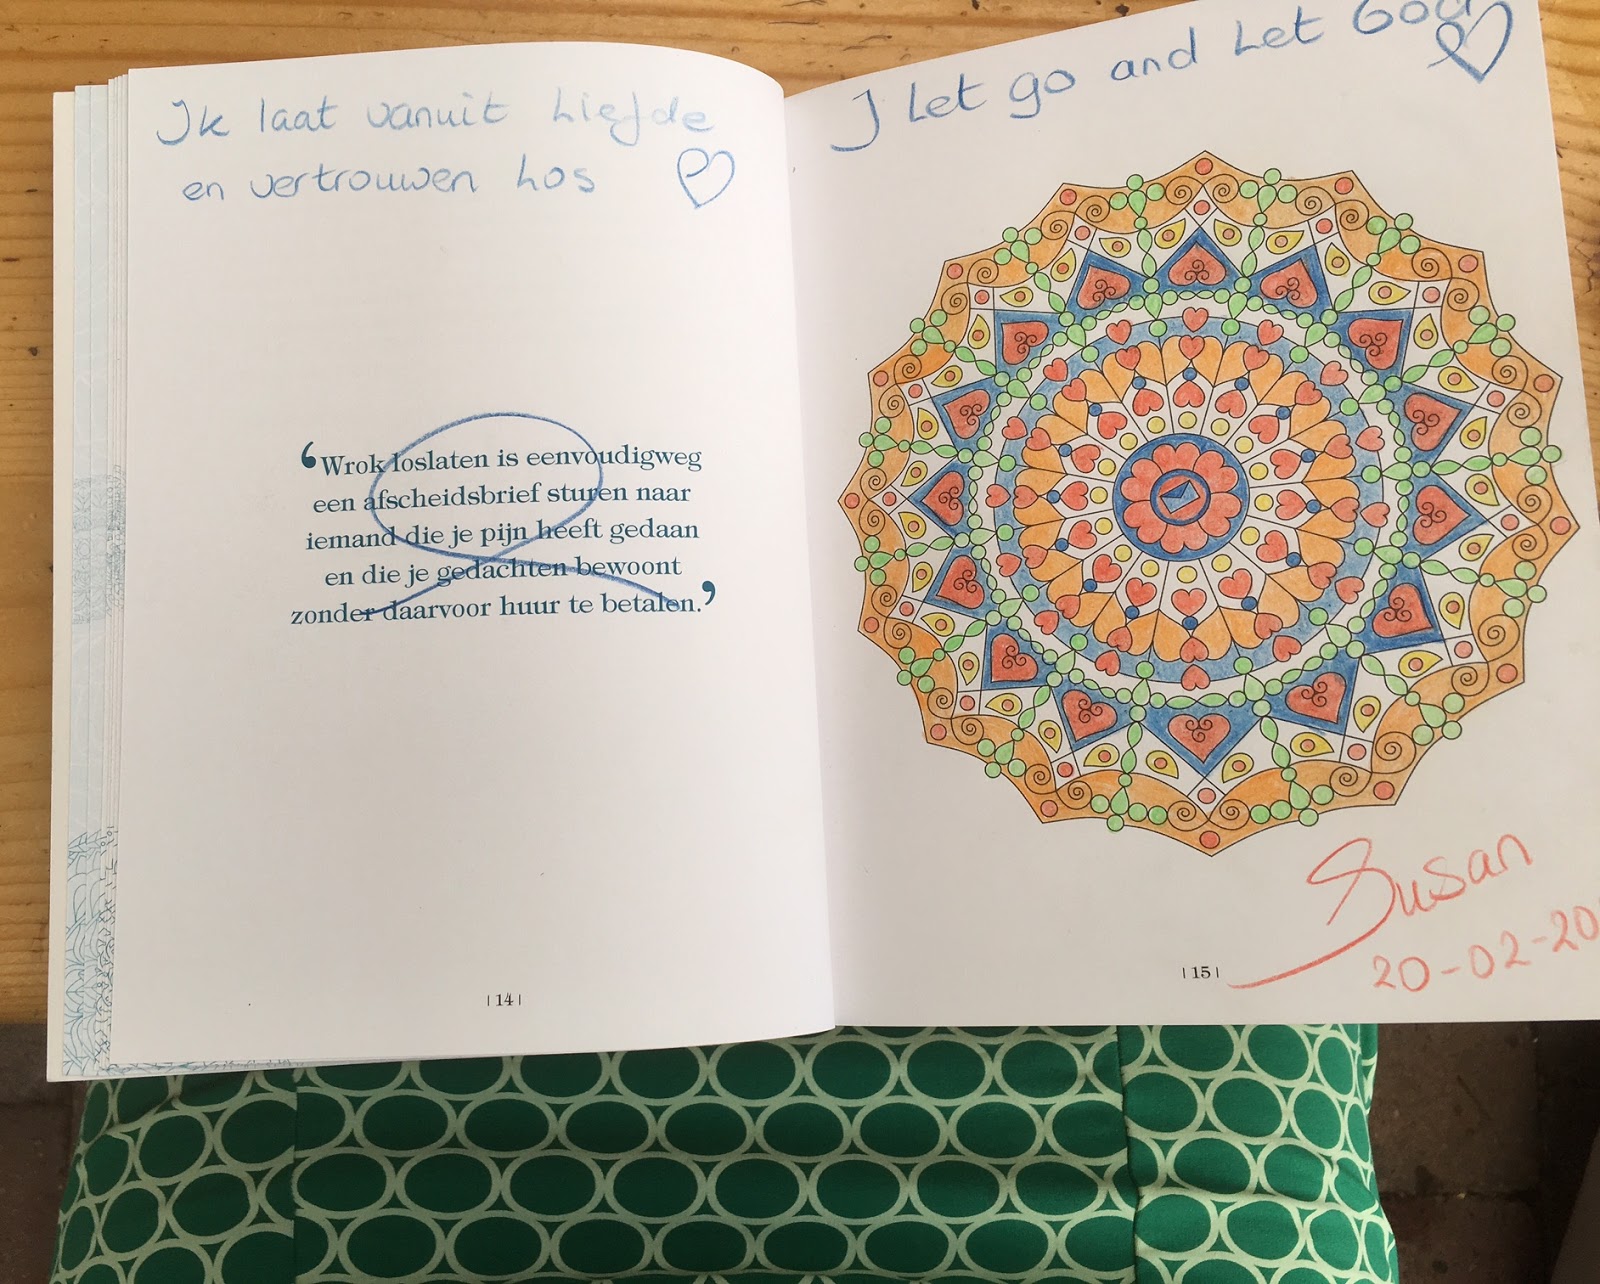 Ik laat vanuit Liefde
en vertrouwen Los
‘Wrok loslaten is eenvoudigweg
een afscheidsbrief sturen naar
iemand die je pijn heeft gedaan
en die je gedachten bewoont
zonder daarvoor huur te betalen.’
| 14 |
I Let go and Let God
Susan
20-02-20
| 15 |